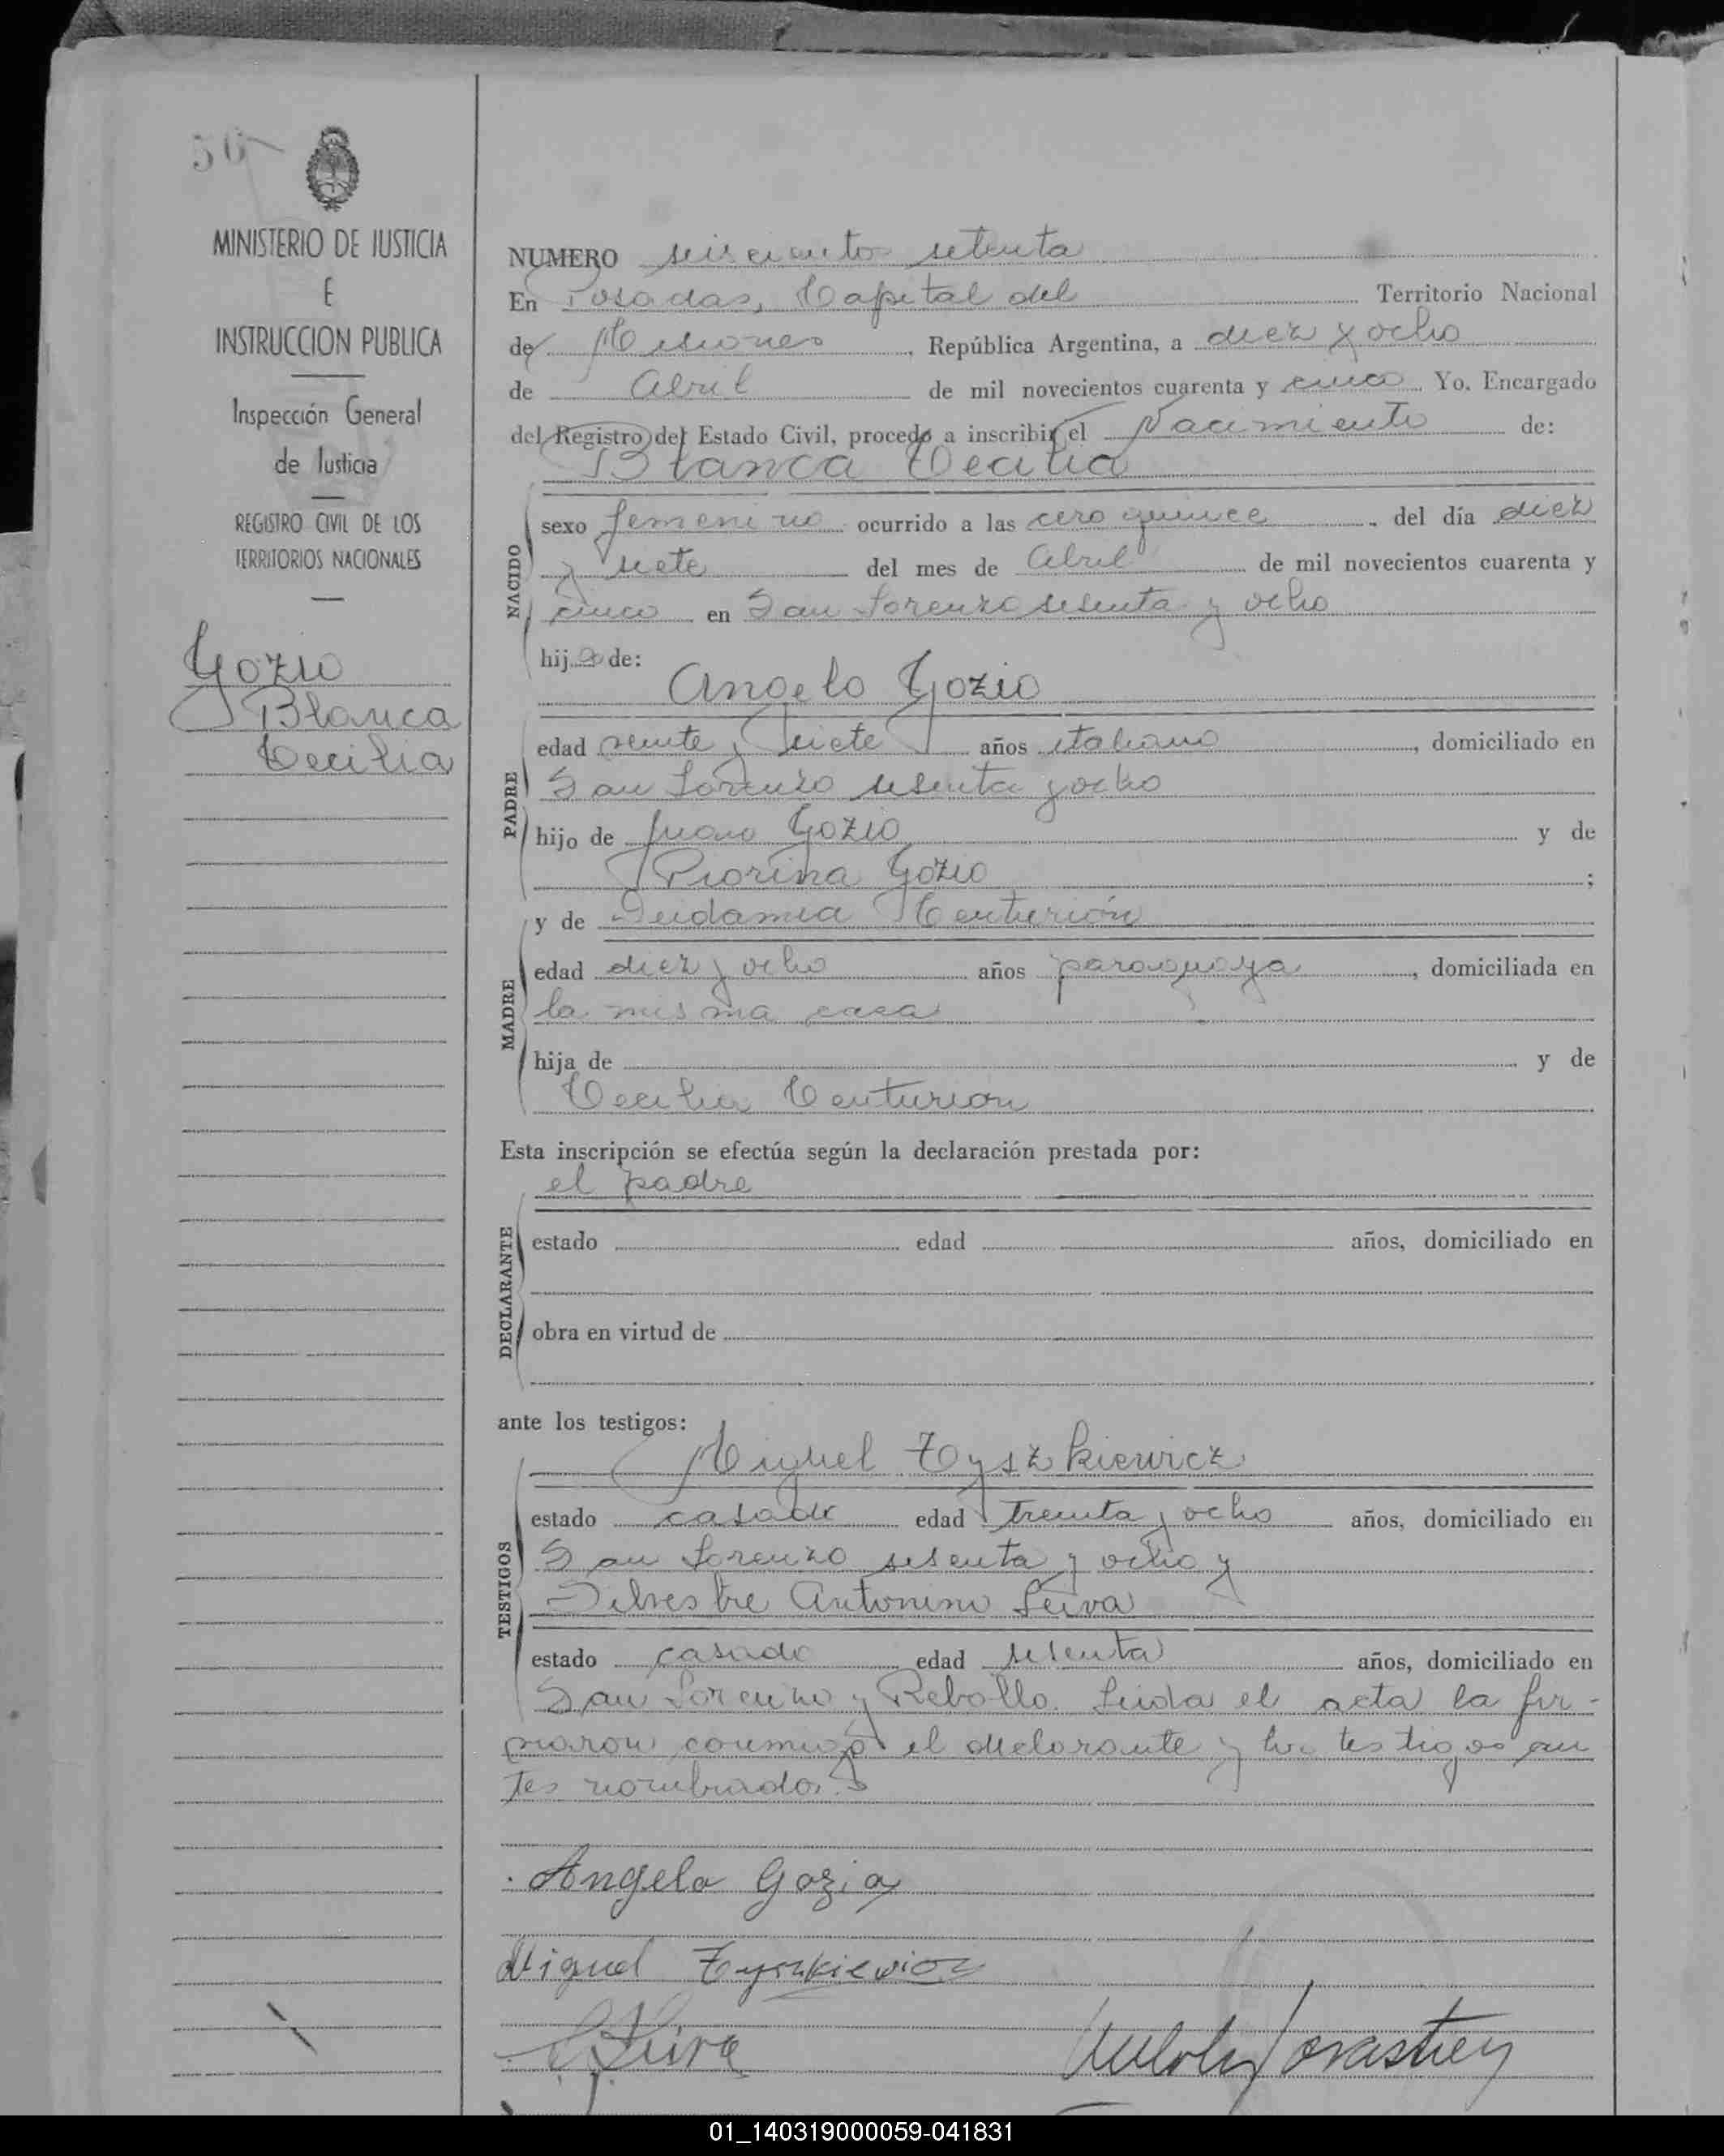 56
MINISTERIO DE JUSTICIA
E
INSTRUCCION PUBLICA
Inspección General
de Justicia
REGISTRO CIVIL DE LOS
TERRITORIOS NACIONALES
Gozio
Blanca
Cecilia
NUMERO seiscientos setenta
En Posadas, Capital del Territorio Nacional
de Misiones, República Argentina, a diez y ocho
de Abril de mil novecientos cuarenta y cinco Yo. Encargado
del Registro del Estado Civil, procedo a inscribir el Nacimiento de:
Blanca Cecilia
NACIDO
sexo femenino ocurrido a las cero quince del día diez
y siete del mes de Abril de mil novecientos cuarenta y
cinco en San Lorenzo sesenta y ocho
hija de:
Angelo Gozio
PADRE
edad veinte y siete años italiano, domiciliado en
San Lorenzo sesenta y ocho
hijo de Juan Gozio y de
Piorina Gozio;
y de Deidamia Centurión
MADRE
edad diez y ocho años paraguaya, domiciliada en
la misma casa
hija de y de
Cecilia Centurion
Esta inscripción se efectúa según la declaración prestada por:
el padre
DECLARANTE
estado edad años, domiciliado en
obra en virtud de
ante los testigos:
Miguel Tyszkiewicz
TESTIGOS
estado casado edad treinta y ocho años, domiciliado en
San Lorenzo sesenta y ocho y
Silvestre Antonino Leiva
estado casado edad sesenta años, domiciliado en
San Lorenzo y Rebollo. Leida el acta la fir-
maron conmigo el declarante y los testigos an
tes nombrados.
Angelo Gozio
Miguel Tyszkiewicz
Leiva
01_140319000059-041831